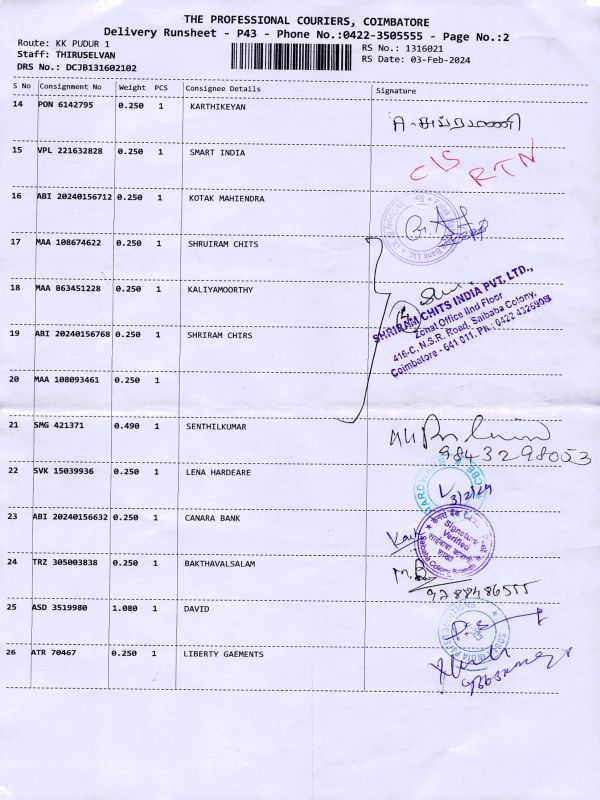 THE PROFESSIONAL COURIERS, COIMBATORE
Delivery Runsheet - P43 - Phone No.:0422-3505555 - Page No.:2
Route: KK PUDUR 1
RS No.: 1316021
Staff: THIRUSELVAN
RS Date: 03-Feb-2024
DRS No.: DCJB131602102
S No Consignment No Weight PCS Consignee Details Signature
14 PON 6142795 0.250 1 KARTHIKEYAN
15 VPL 221632828 0.250 1 SMART INDIA
C/S RTN
16 ABI 20240156712 0.250 1 KOTAK MAHIENDRA
17 MAA 108674622 0.250 1 SHRUIRAM CHITS
18 MAA 863451228 0.250 1 KALIYAMOORTHY
SHRIRAM CHITS INDIA PVT. LTD.,
Zonal Office IInd Floor
416-C, N.S.R. Road, Saibaba Colony,
Coimbatore - 641 011. PH.: 0422 4326908
19 ABI 20240156768 0.250 1 SHRIRAM CHIRS
20 MAA 108093461 0.250 1
21 SMG 421371 0.490 1 SENTHILKUMAR
9843298053
22 SVK 15039936 0.250 1 LENA HARDEARE
3/2/24
23 ABI 20240156632 0.250 1 CANARA BANK
Signature
Verified
24 TRZ 305003838 0.250 1 BAKTHAVALSALAM
M.B
9788486555
25 ASD 3519980 1.080 1 DAVID
26 ATR 70467 0.250 1 LIBERTY GAEMENTS